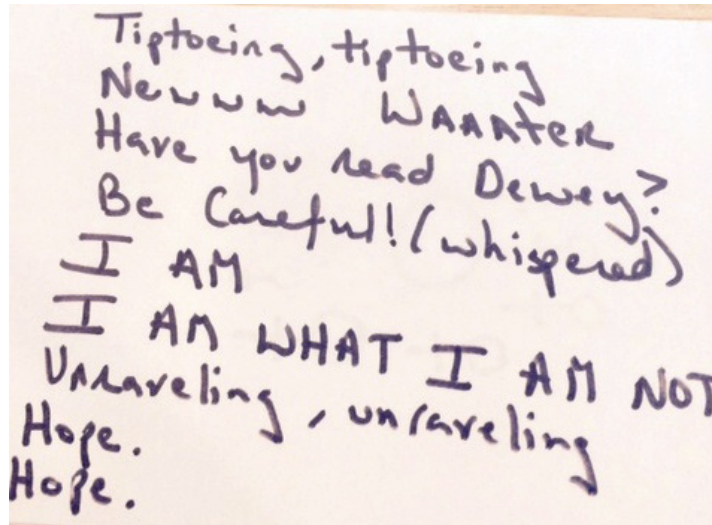 Tiptoeing, tiptoeing
Newwww WAAAteR
Have you read Dewey?
Be Careful! (whispered)
I AM
I AM WHAT I AM NOT
Unraveling, unraveling
Hope.
Hope.